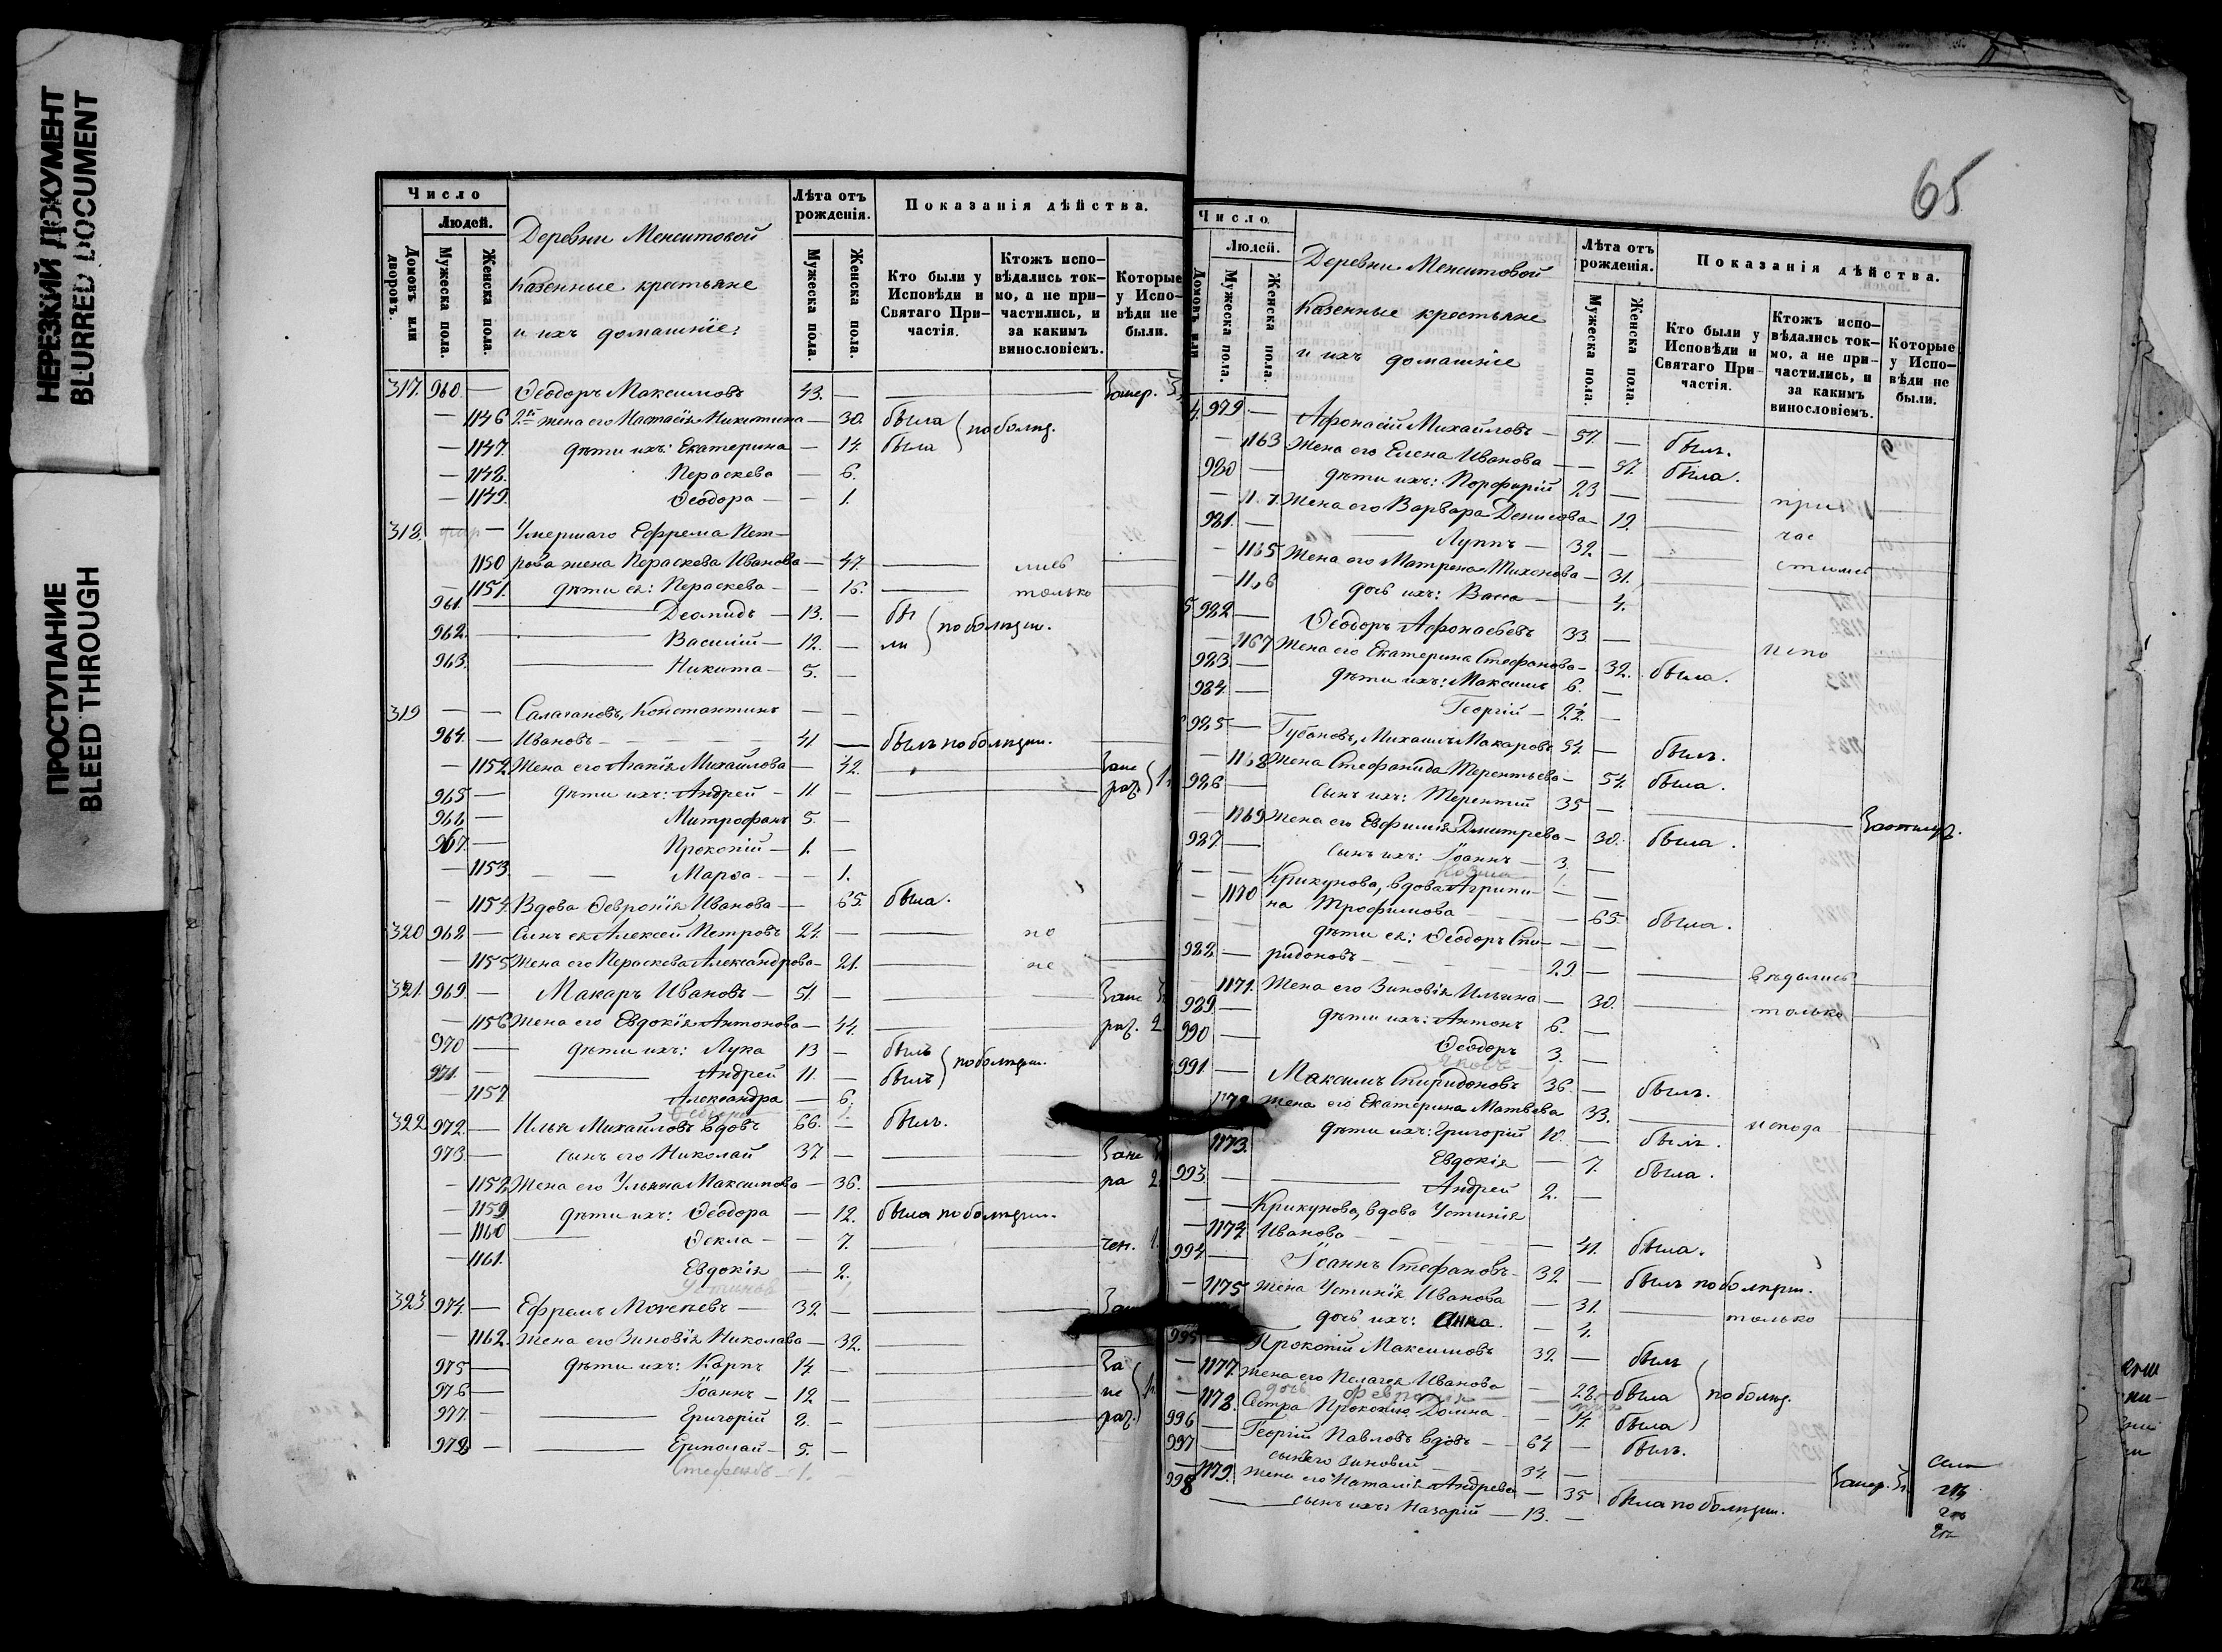 НЕРЕЗКИЙ ДОКУМЕНТ
BLURRED DOCUMENT
ПРОСТУПАНИЕ
BLEED THROUGH
Число
Людей.
Домовъ или дворовъ.
Мужеска пола.
Женска пола.
Деревни Менситовой
казенные крестьяне
и ихъ домашніе:
Лѣта отъ рожденія.
Мужеска пола.
Женска пола.
Показанія дѣйства.
Кто были у Исповѣди и Святаго При-частія.
Ктожъ испо-вѣдались ток-мо, а не при-частились, и за какимъ винословіемъ.
Которые у Испо-вѣди не были.
317. 960. — Ѳеодоръ Максимовъ 43. —
— 1146 2я жена его Настасія Никитина — 30. была по болѣз.
— 1147. дѣти ихъ: Екатерина — 14. была
— 1148. Пераскева — 6.
— 1149. Ѳеодора — 1.
318. — Умершаго Ефрема Пет-
1150 рова жена Пераскева Иванова — 47. лись
— 1151. дѣти ея: Пераскева — 16. только
961. Деомидъ — 13. — бы
962. Василій — 12. — ли по болѣзни.
963. Никита — 5. —
319 — — Салагановъ, Константинъ — —
964. — Ивановъ 41. — былъ по болѣзни.
— 1152. Жена его Агапія Михайлова — 42.
965 — дѣти ихъ: Андрей — 11 —
966 — Митрофанъ 5. —
967. — Прокопій — 1. —
— 1153. Марѳа — 1.
— 1154. Вдова Ѳевронія Иванова — 65. была.
320 968 — Сынъ ея Алексей Петровъ 24. — по
— 1155 Жена его Пераскева Александрова — 21. не
321. 969. — Макаръ Ивановъ — 51. —
— 1156 Жена его Евдокія Антонова — 44.
970 — дѣти ихъ: Лука 13 — былъ по болѣзни.
971. — Андрей 11. — былъ
— 1157 Александра — 6.
322 972. — Илья Михайловъ вдовъ 66. — былъ.
973. — сынъ его Николай 37 —
— 1158. Жена его Ульяна Максимова — 36.
— 1159 дѣти ихъ: Ѳеодора — 12. была по болѣзни.
— 1160 Ѳекла — 7.
— 1161. Евдокія — 2.
323 974. — Ефремъ 39. —
— 1162. Жена его Зиновія Николаева — 39.
975 — дѣти ихъ: Карпъ 14. —
976 — Іоаннъ — 12 —
977. — Григорій 8. —
978 — 5. —
Стефанъ — 1. —
65
Число.
Людей.
Домовъ или
Мужеска пола.
Женска пола.
Деревни Менситовой
казенные крестьяне
и ихъ домашніе
Лѣта отъ рожденія.
Мужеска пола.
Женска пола.
Показанія дѣйства.
Кто были у Исповѣди и Святаго При-частія.
Ктожъ испо-вѣдались ток-мо, а не при-частились, и за какимъ винословіемъ.
Которые у Испо-вѣди не были.
979 — Афонасій Михайловъ — 57. — былъ.
— 1163 Жена его Елена Иванова — 57. была.
980 — дѣти ихъ: Порфирій 23 — при
Жена его Варвара Денисова — 19.
981. — Луппъ — 39. — час
— 1165 Жена его Матрена Тихонова — 31. стились
дочь ихъ: Васса — 4.
982 Ѳеодоръ Афонасьевъ 33. — испо
— 1167 Жена его Екатерина Стефанова — 32. была.
983. — дѣти ихъ: Максимъ 6. —
984. — Георгій —
985 — Губановъ, Михаилъ Макаровъ 54. — былъ.
— 1168 Жена Стефанида Терентьева — 54. была.
986 — Сынъ ихъ: Терентій 35 —
— 1169 Жена его Евфимія Дмитрева — 30. была.
987 — сынъ ихъ: Іоаннъ — 3. —
— — Крикунова, вдова Агрипи- — —
— 1170 на Трофимова — 65. была.
дѣти ея: Ѳеодоръ Спи- — —
988 — ридоновъ 29. — вѣдались
— 1171. Жена его Зиновія Ильина — 30. только
989. — дѣти ихъ: Антонъ 6. —
990 — Ѳеодоръ 3. —
991 — Максимъ Спиридоновъ 36. — былъ.
1172 Жена его Екатерина Матвева 33. испода
дѣти ихъ: Григорій 10. — былъ.
1173. Евдокія — 7. была.
993. — Андрей 2. —
— Крикунова, вдова Устинія
— 1174. Иванова — 41. была.
994. — Іоаннъ Стефановъ — 32 — былъ по болѣзни.
— 1175 жена Устинія Иванова — 31. только
дочь ихъ: Анна. — 4.
995 — Прокопій Максимовъ 32 — былъ
— 1177. Жена его Пелагея Иванова — 28. была по болѣз.
— 1178. Сестра Прокопію Домна — 14. была
996 — Георгій Павловъ вдовъ — 64 — былъ.
997 — сынъ его Зиновей 34. —
— 1179. Жена его Наталія Андрева — 35 была по болѣзни.
998 — сынъ ихъ: Назарій — 13. —